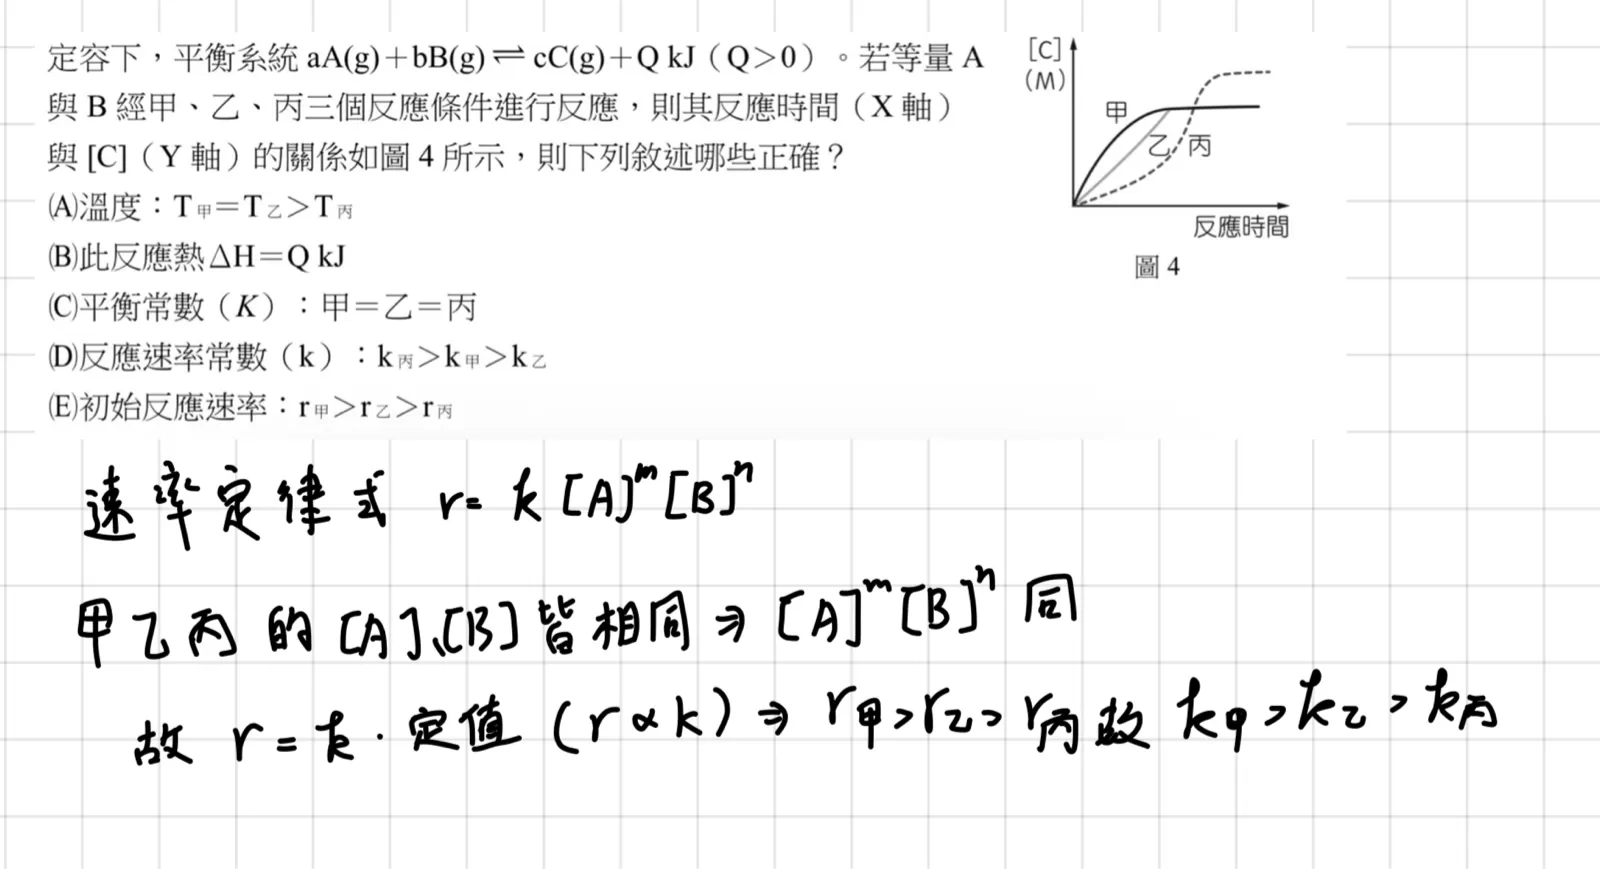 定容下，平衡系統 aA(g)＋bB(g)⇌cC(g)＋Q kJ（Q＞0）。若等量 A
與 B 經甲、乙、丙三個反應條件進行反應，則其反應時間（X 軸）
與 [C]（Y 軸）的關係如圖 4 所示，則下列敘述哪些正確？
(A)溫度：T甲＝T乙＞T丙
(B)此反應熱 ΔH＝Q kJ
(C)平衡常數（K）：甲＝乙＝丙
(D)反應速率常數（k）：k丙＞k甲＞k乙
(E)初始反應速率：r甲＞r乙＞r丙
[C]
(M)
甲
乙 丙
反應時間
圖 4
速率定律式 r= k [A]^m [B]^n
甲乙丙的 [A]、[B] 皆相同 ⇒ [A]^m [B]^n 同
故 r = k · 定值 (r ∝ k) ⇒ r甲 > r乙 > r丙 故 k甲 > k乙 > k丙